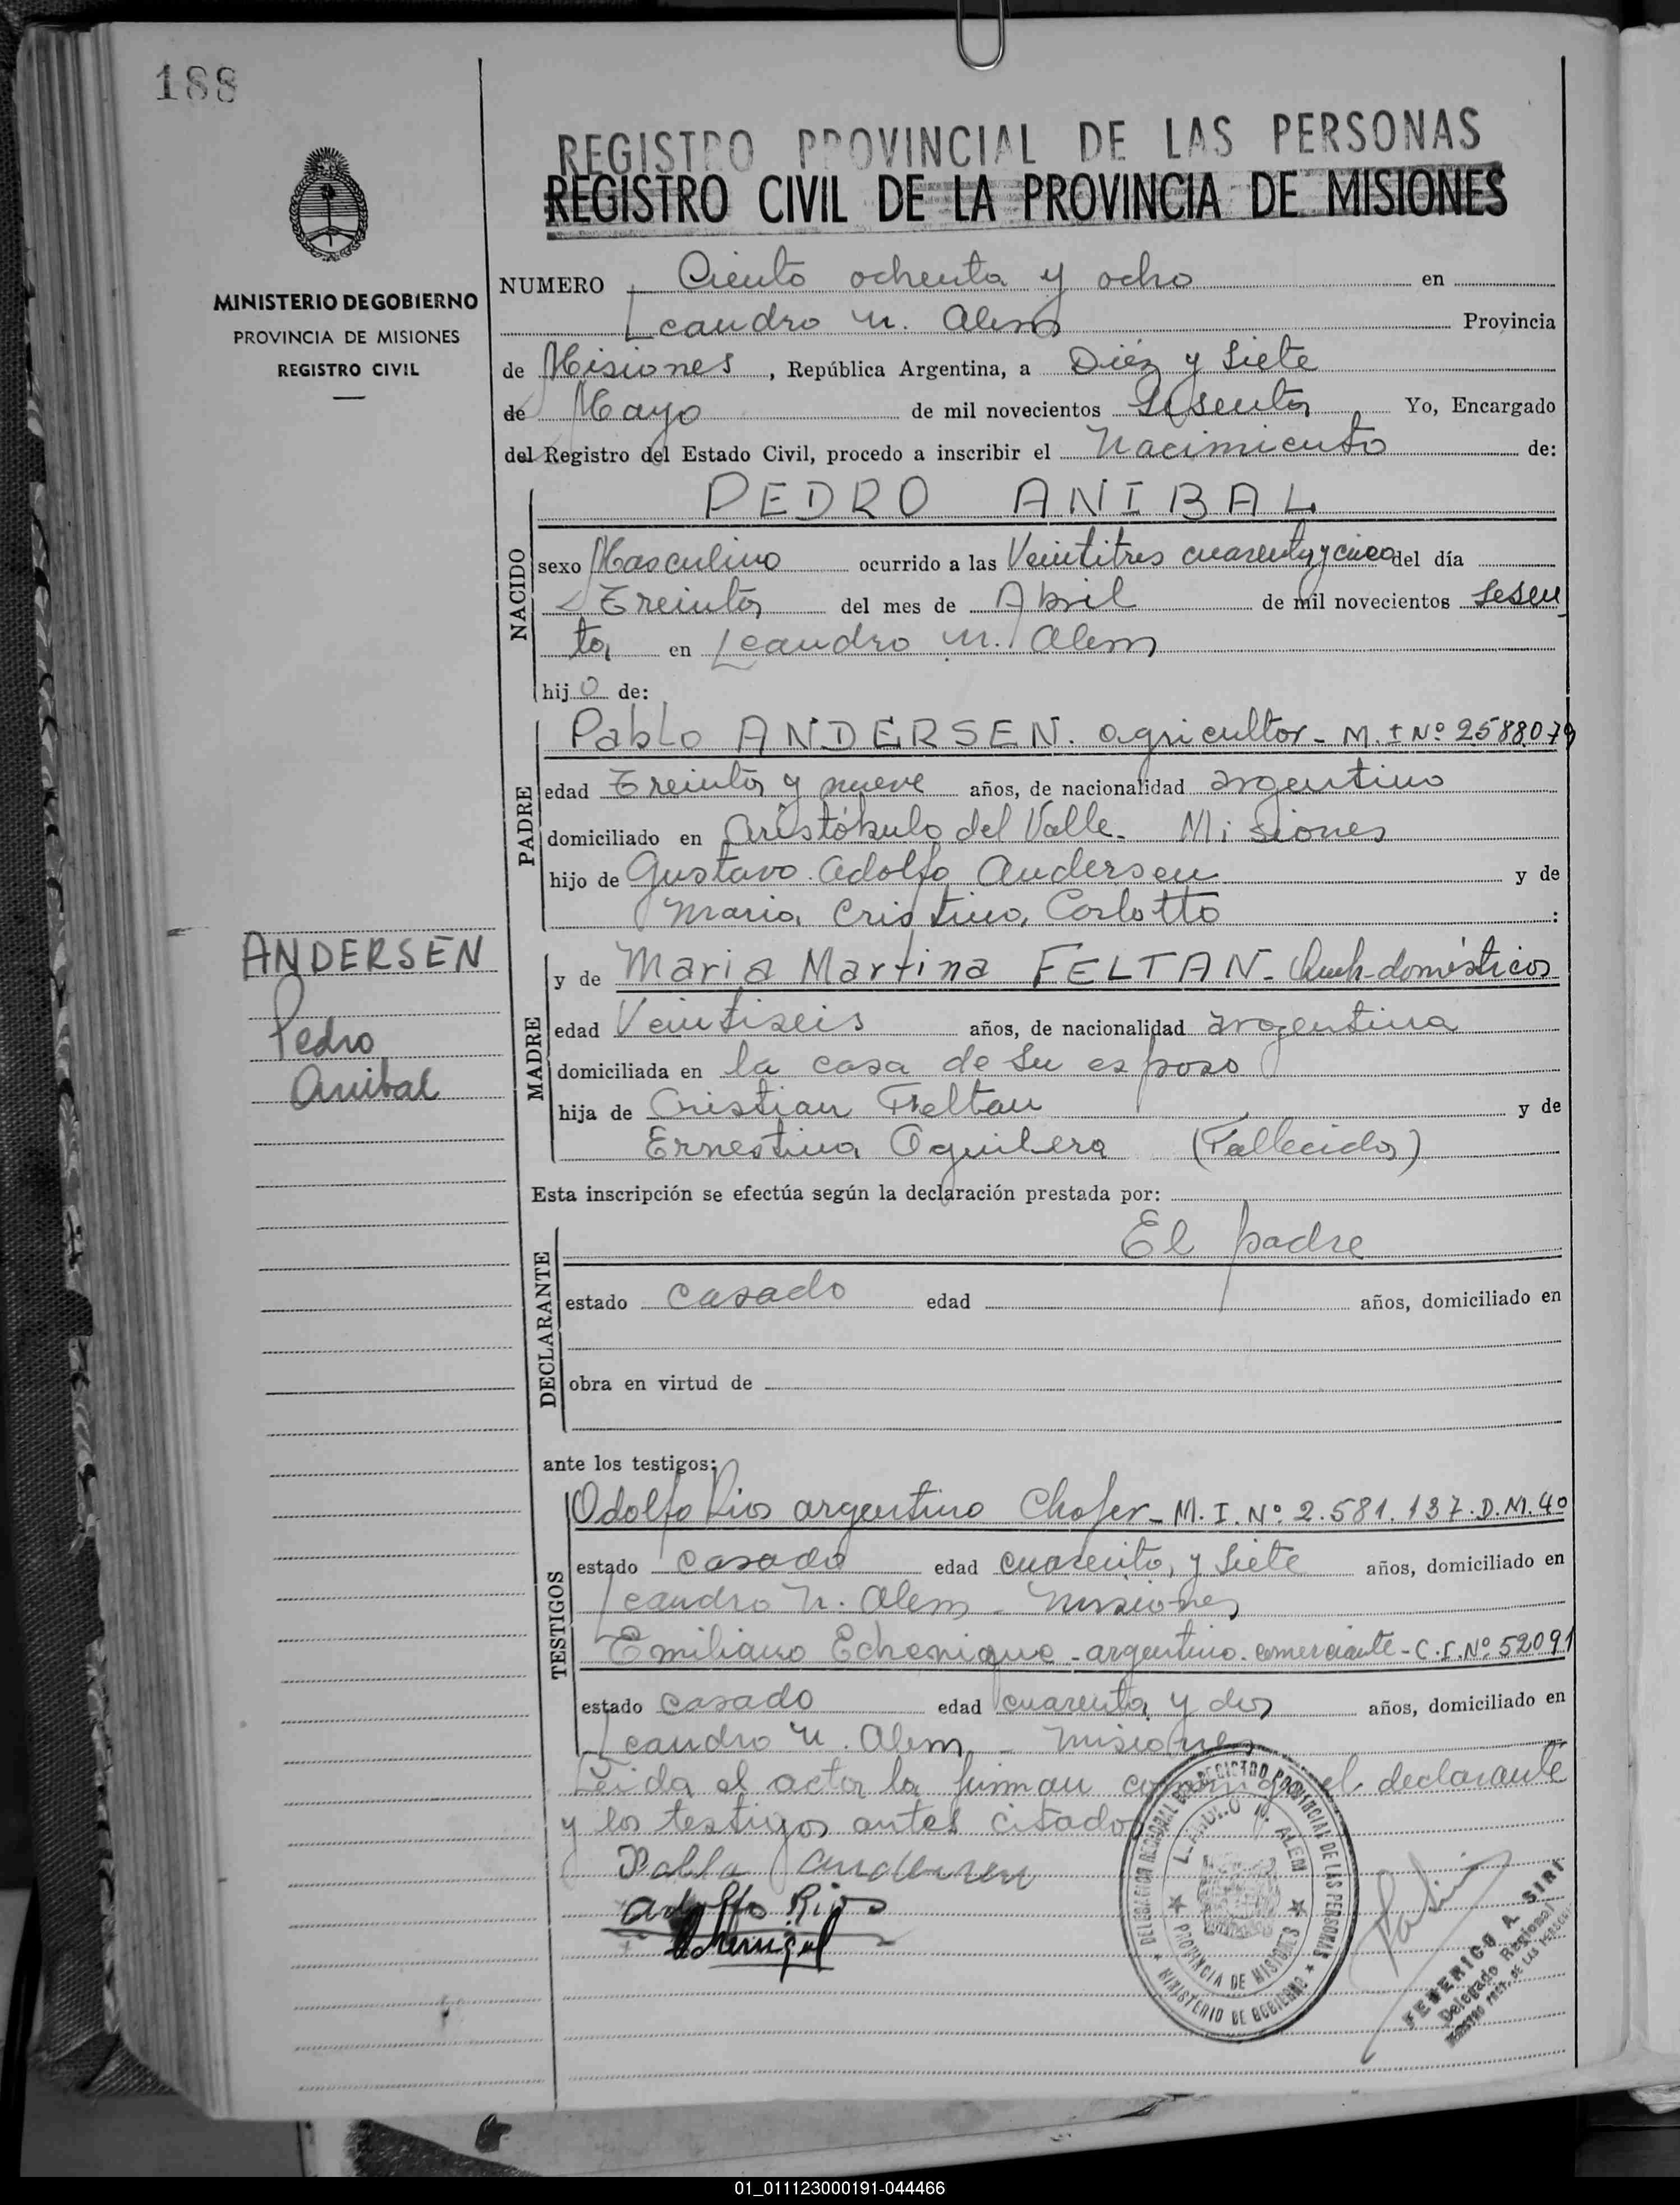 188
REGISTRO PROVINCIAL DE LAS PERSONAS
REGISTRO CIVIL DE LA PROVINCIA DE MISIONES
MINISTERIO DE GOBIERNO
PROVINCIA DE MISIONES
REGISTRO CIVIL
NUMERO Ciento ochenta y ocho en
Leandro N. Alem Provincia
de Misiones, República Argentina, a Diéz y Siete
de Mayo de mil novecientos Sesenta Yo, Encargado
del Registro del Estado Civil, procedo a inscribir el Nacimiento de:
NACIDO
PEDRO ANIBAL
sexo Masculino ocurrido a las Veintitres cuarenta y cinco del día
Treinta del mes de Abril de mil novecientos Sesen
ta en Leandro N. Alem
hijo de:
PADRE
Pablo ANDERSEN. agricultor - M. I Nº 2588079
edad Treinta y nueve años, de nacionalidad argentino
domiciliado en Aristóbulo del Valle - Misiones
hijo de Gustavo Adolfo Andersen y de
Maria Cristina Carlotto :
ANDERSEN
Pedro
Anibal
MADRE
y de Maria Martina FELTAN - Queh-domésticos
edad Veintiseis años, de nacionalidad argentina
domiciliada en la casa de su esposo
hija de Cristian Feltan y de
Ernestina Aguilera (Fallecida)
Esta inscripción se efectúa según la declaración prestada por:
DECLARANTE
El padre
estado casado edad años, domiciliado en
obra en virtud de
ante los testigos:
TESTIGOS
Adolfo Rios argentino Chofer - M. I. Nº 2.581.137. D.M. 40
estado casado edad cuarenta y siete años, domiciliado en
Leandro N. Alem - Misiones
Emiliano Echenique - argentino. comerciante - C.I. Nº 52091
estado casado edad cuarenta y dos años, domiciliado en
Leandro N. Alem - Misiones
Leida el acta la firman conmigo el declarante
y los testigos antes citados
Pablo Andersen
Adolfo Rios
Echenique
DELEGACION REGIONAL DEL REGISTRO PROVINCIAL DE LAS PERSONAS
LEANDRO N. ALEM
PROVINCIA DE MISIONES
MINISTERIO DE GOBIERNO
FEDERICO A. SIRI
Delegado Regional
REGISTRO PROV. DE LAS PERSONAS
01_011123000191-044466